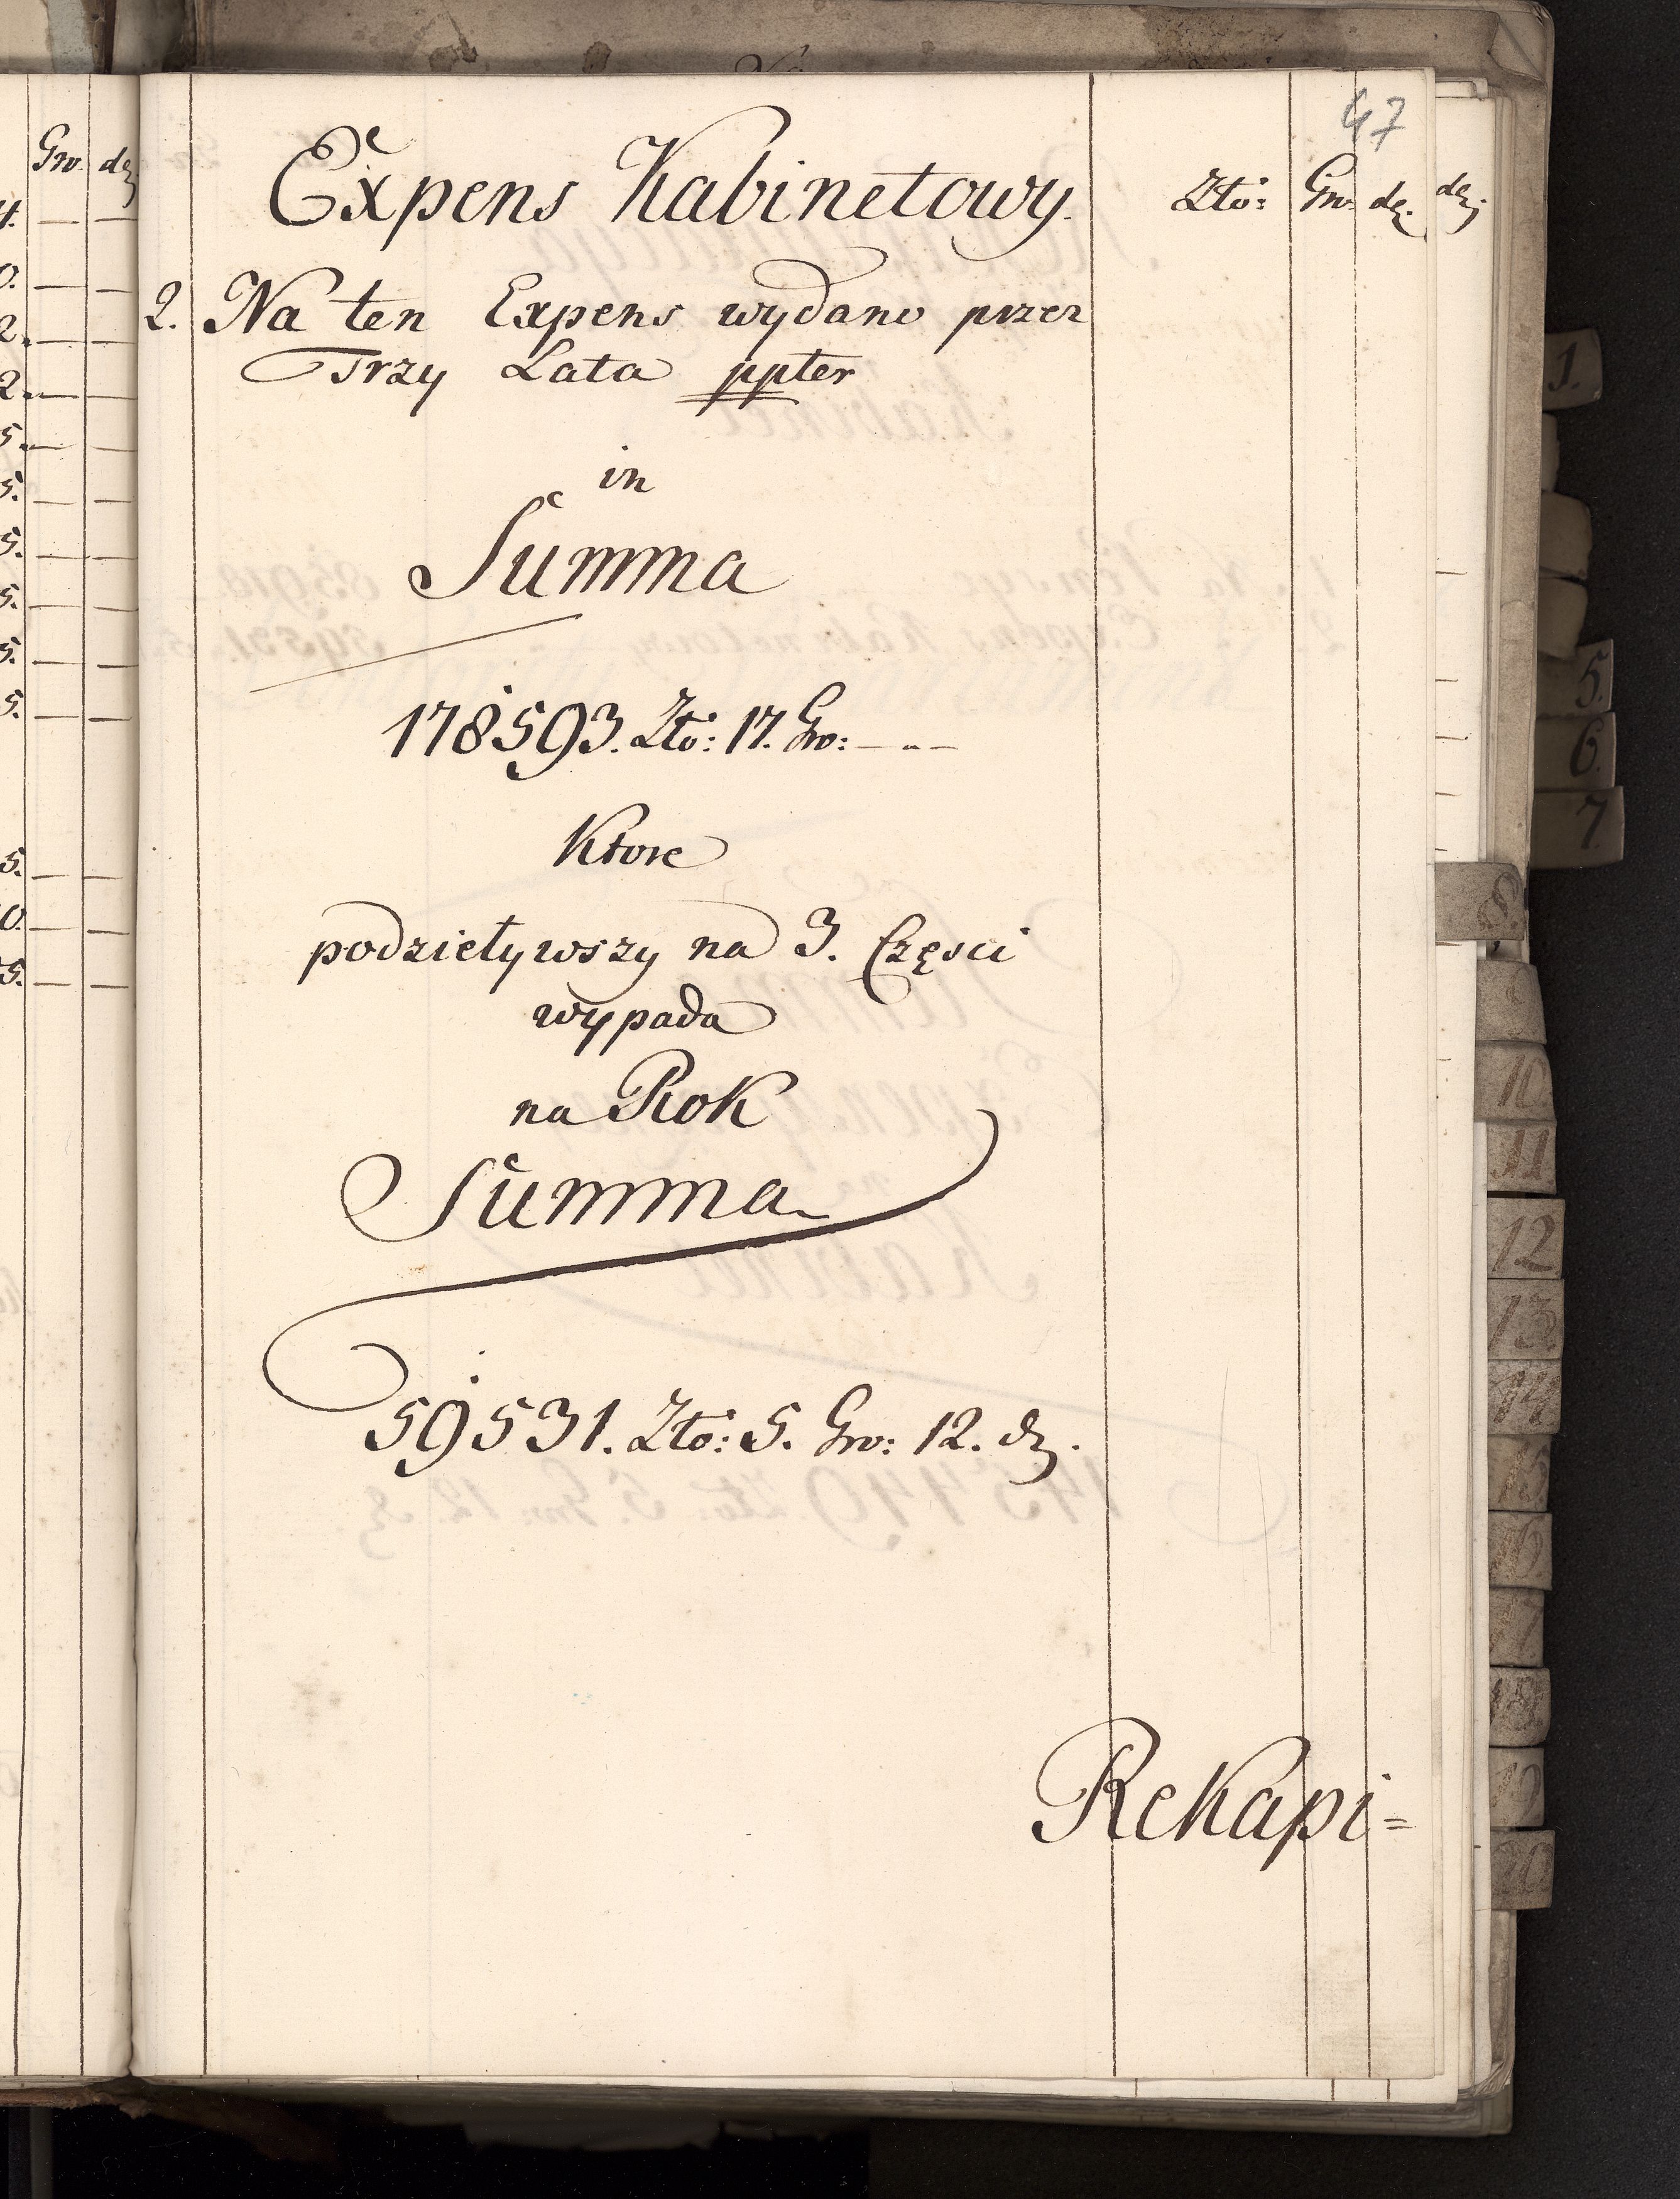 47
Expens Kabinetowy.
Złto: Gro: dz.
2. Na ten Expens wydano przez
Trzy Lata ppter
in
Summa
178593. Złto: 17. Gro: - .. -
Ktore
podzieływszy na 3. Częsci
wypada
na Rok
Summa
59531. Złto: 5. Gro: 12. dz.
Rekapi=
Gro. dz
dz.
1.
5.
6.
7.
8
10
11
12
13
14
15
16
17
18
19
20